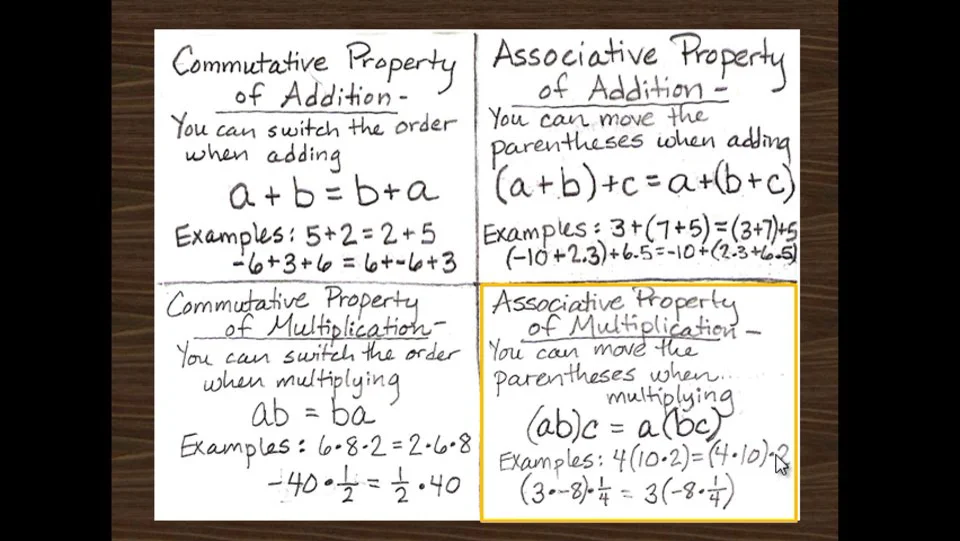 Commutative Property
of Addition -
You can switch the order
when adding
a + b = b + a
Examples: 5 + 2 = 2 + 5
-6 + 3 + 6 = 6 + -6 + 3
Associative Property
of Addition -
You can move the
parentheses when adding
(a + b) + c = a + (b + c)
Examples: 3 + (7 + 5) = (3 + 7) + 5
(-10 + 2.3) + 6.5 = -10 + (2.3 + 6.5)
Commutative Property
of Multiplication -
You can switch the order
when multiplying
ab = ba
Examples: 6 • 8 • 2 = 2 • 6 • 8
-40 • 1/2 = 1/2 • 40
Associative Property
of Multiplication -
You can move the
parentheses when
multiplying
(ab)c = a(bc)
Examples: 4(10 • 2) = (4 • 10) • 2
(3 • -8) • 1/4 = 3(-8 • 1/4)